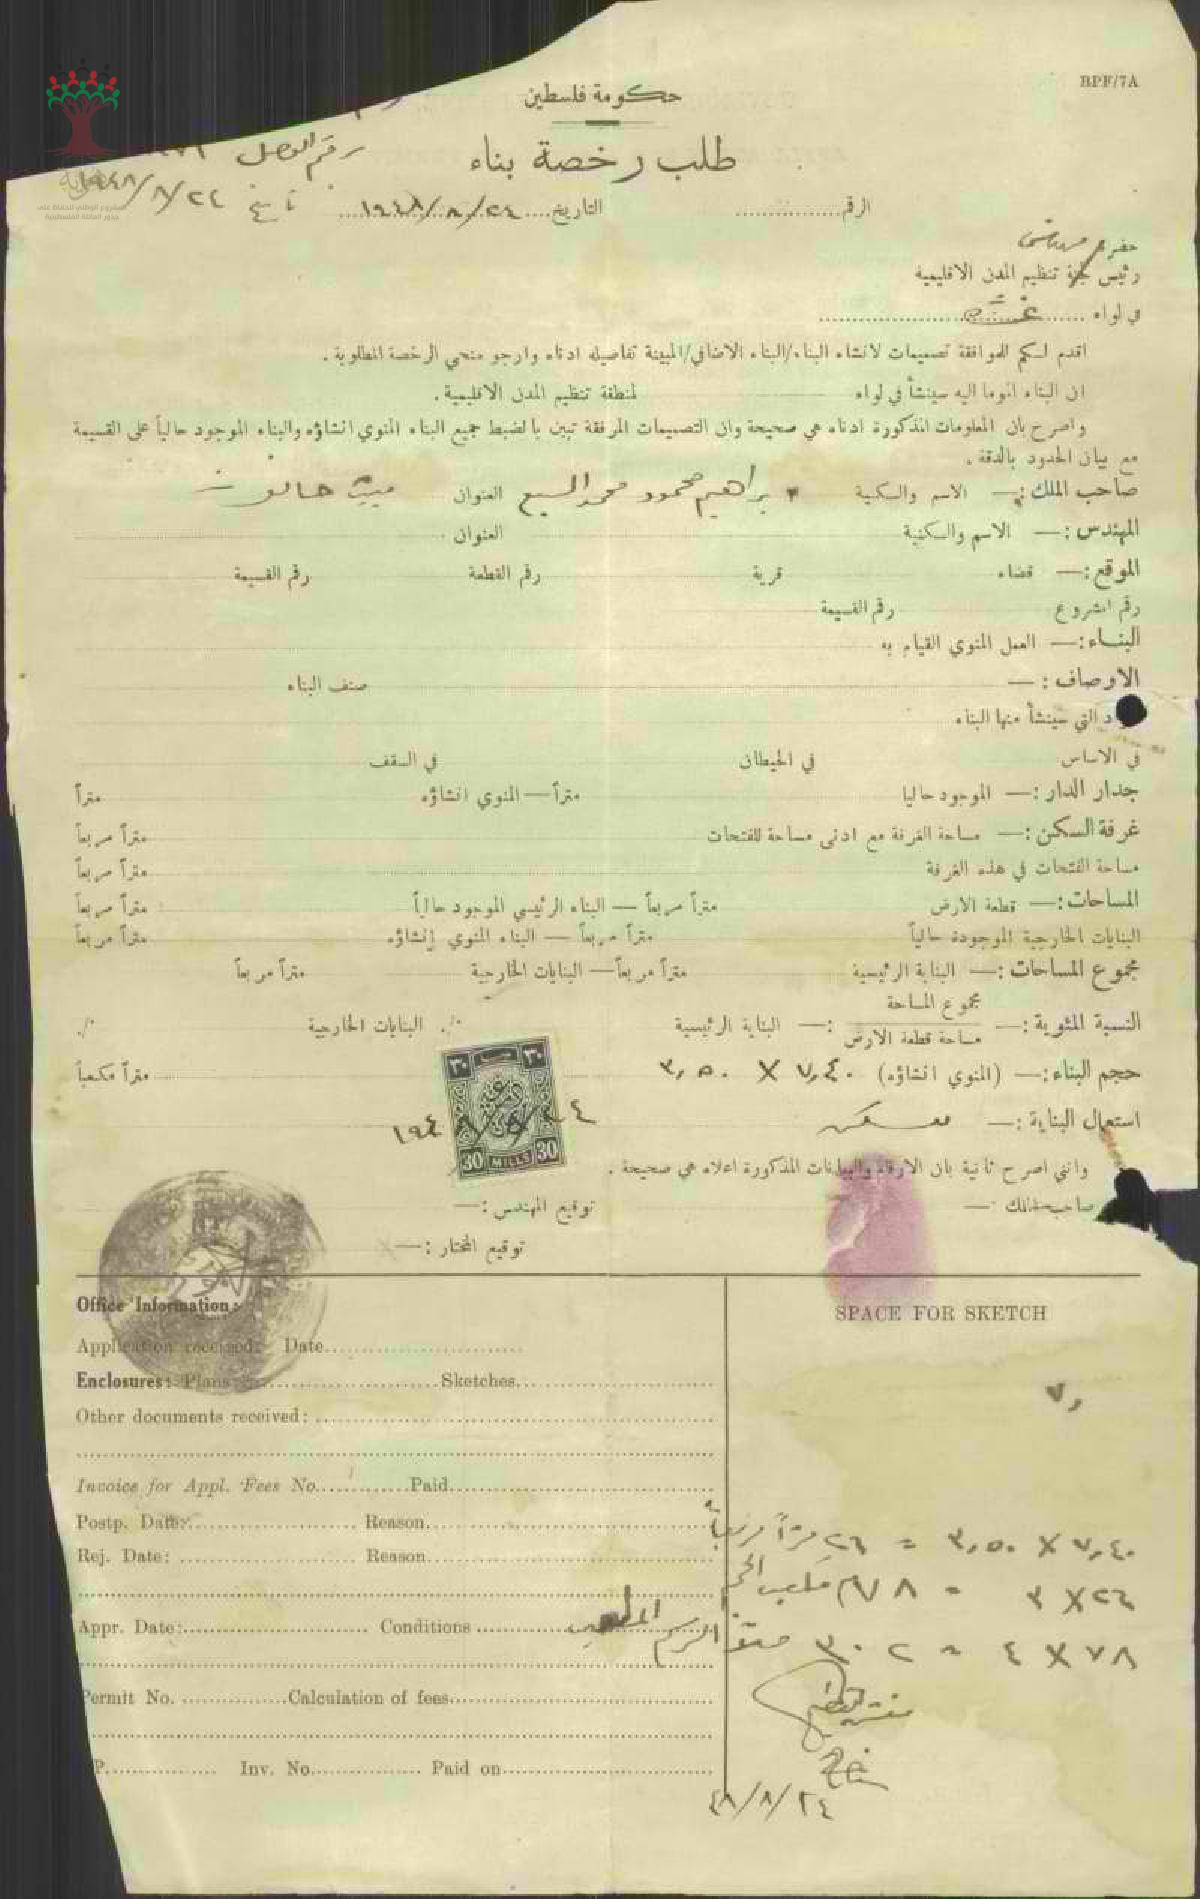 BPF/7A
حكومة فلسطين
طلب رخصة بناء
رقم الوصل
تاريخ ١٩٤٨/٨/٢٤
الرقم ................ التاريخ ١٩٤٨/٨/٢٤
حضرة مهندس
رئيس لجنة تنظيم المدن الاقليمية
في لواء غزة
اقدم لكم للموافقة تصميمات لانشاء البناء/البناء الاضافي/المبينة تفاصيله ادناه وارجو منحي الرخصة المطلوبة .
ان البناء الموما اليه سينشأ في لواء لمنطقة تنظيم المدن الاقليمية .
واصرح بان المعلومات المذكورة ادناه هي صحيحة وان التصميمات المرفقة تبين بالضبط جميع البناء المنوي انشاؤه والبناء الموجود حالياً على القسيمة
مع بيان الحدود بالدقة .
صاحب الملك :— الاسم والكنية ابراهيم محمود محمد السبع العنوان بيت حانون
المهندس :— الاسم والكنية العنوان
الموقع :— قضاء قرية رقم القطعة رقم القسيمة
رقم المشروع رقم القسيمة
البناء :— العمل المنوي القيام به
الاوصاف :— صنف البناء
التي سينشأ منها البناء
في الاساس في الحيطان في السقف
جدار الدار :— الموجود حاليا متراً — المنوي انشاؤه متراً
غرفة السكن :— مساحة الغرفة مع ادنى مساحة للفتحات متراً مربعاً
مساحة الفتحات في هذه الغرفة متراً مربعاً
المساحات :— قطعة الارض متراً مربعاً — البناء الرئيسي الموجود حالياً متراً مربعاً
البنايات الخارجية الموجودة حالياً متراً مربعاً — البناء المنوي إنشاؤه متراً مربعاً
مجموع المساحات :— البناية الرئيسية متراً مربعاً — البنايات الخارجية متراً مربعاً
النسبة المئوية :— مجموع المساحة / مساحة قطعة الارض :— البناية الرئيسية ٪. البنايات الخارجية ٪.
حجم البناء :— (المنوي انشاؤه) ٧,٤٠ X ٣,٥٠ متراً مكعباً
٣٠ ٣٠
30 MILLS 30
استعمال البناية :— سكن
وانني اصرح ثانية بان الارقام والبيانات المذكورة اعلاه هي صحيحة .
صاحب الملك :— توقيع المهندس :—
توقيع المختار :—
Office Information:
Application received: Date
Enclosures: Plans Sketches
Other documents received:
Invoice for Appl. Fees No. Paid
Postp. Date: Reason
Rej. Date: Reason
Appr. Date: Conditions
Permit No. Calculation of fees
P. Inv. No. Paid on
SPACE FOR SKETCH
٧,
٧,٤٠ X ٣,٥٠ = ٢٦ متراً مربعاً
٢٦ X ٣ = ٧٨ م مكعب الحجم
٧٨ X ٤ = ٣٠٢ الرسم
٤٨/٨/٢٤